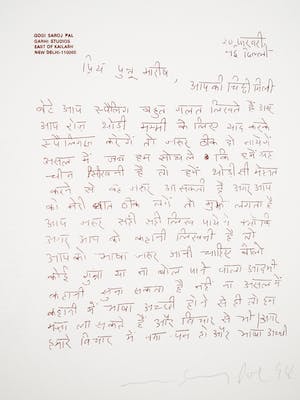 GOGI SAROJ PAL
GARHI STUDIOS
EAST OF KAILASH
NEW DELHI-110065
नई दिल्ली
प्रिय
आप की चिट्ठी मिली
बेटे आप स्पैलिंग बहुत गलत लिखते हैं अगर
आप रोज़ थोड़ी मम्मी के लिए याद करके
करेंगे तो जरूर ठीक हो जायेंगे
असल में जब हम सोचले कि हमें यह
चीज़ सिखनी है तो हमें थोड़ी सी मेहनत
करने से वह जरूर आ सकती है अगर आप
को मेरी बात ठीक लगे तो मुझे लगता है
आप जरूर सही सही लिख पायेंगे क्योंकि
अगर आप को कहानी लिखनी है तो
आप को भाषा जरूर आनी चाहिए वैसे
कोई गुंगा या ना बोल पाने वाला आदमी
कहानी सुना सकता है नहीं ना असल में
कहानी में भाषा अच्छी होने से ही तो हम
मज़ा ला सकते हैं और विचार से भी अगर
हमारे विचार में नया पन हो और भाषा अच्छी